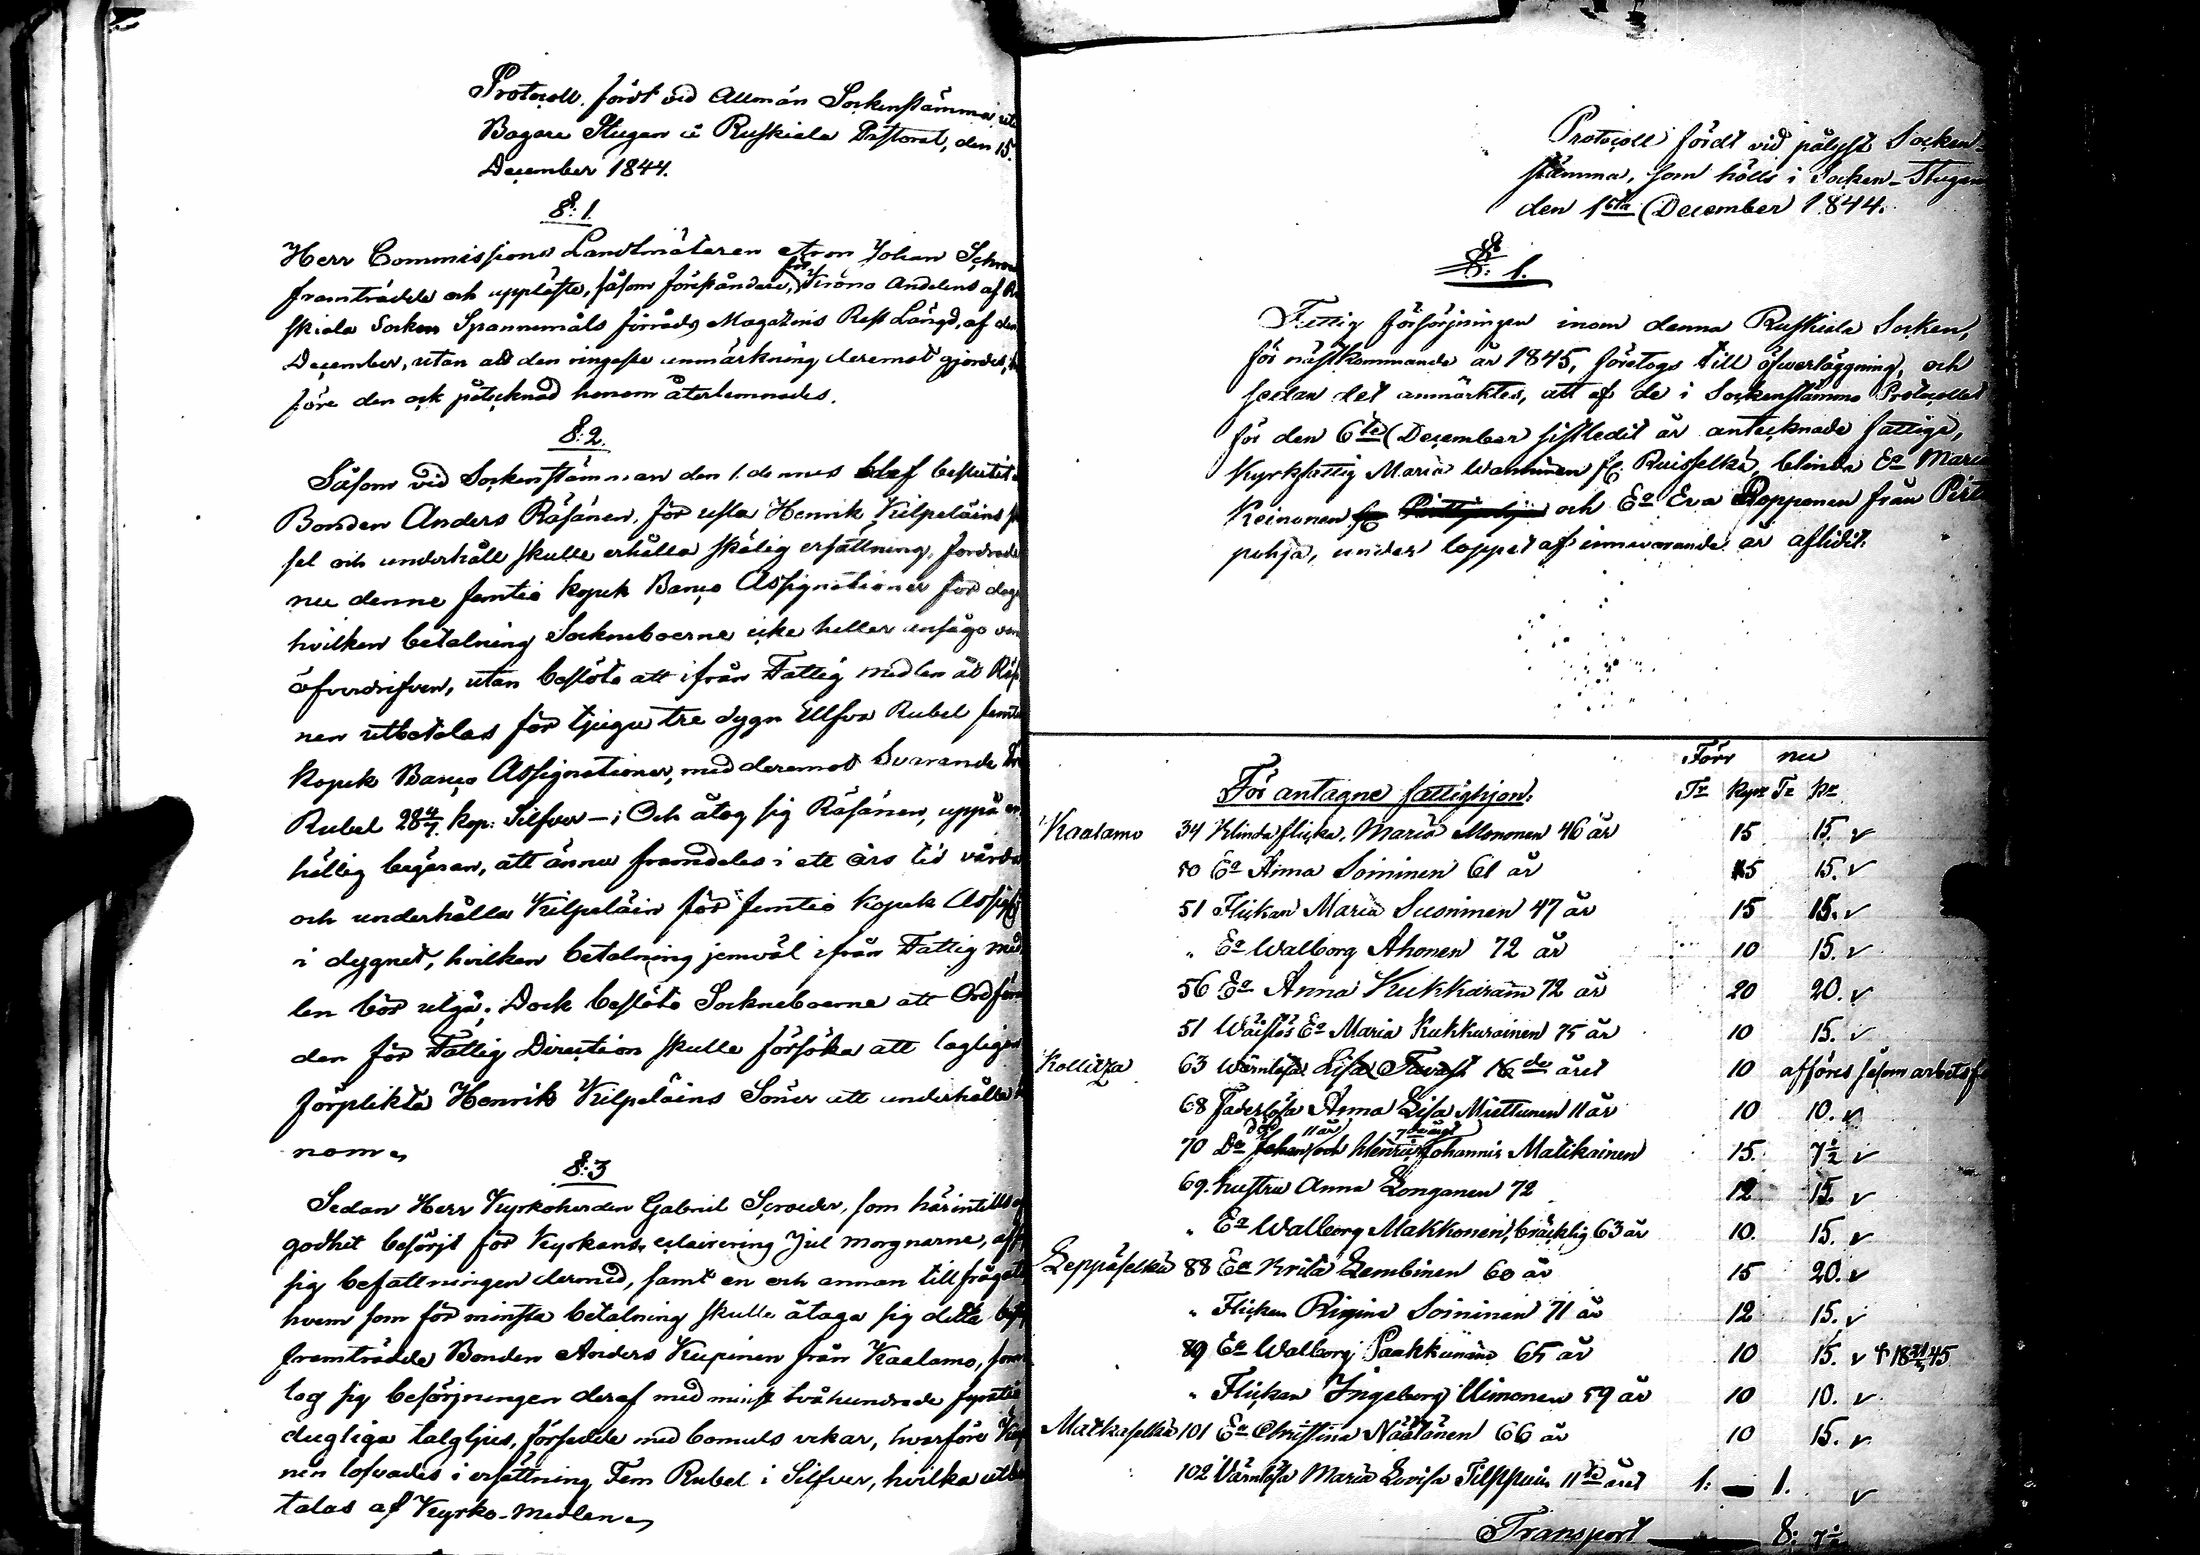 Protocoll, fördt vid Allmän Sockenstämma uti
Bagare Stugan å Ruskiala Pastorat, den 15.
December 1844.
§: 1.
Herr Commissions Landtmätaren Aron Johan Schro
framträdde och uppläste, såsom föreståndare, för Krono Andelens af Ru
skiala Socken Spannemåls förråds Magazins Rest Längd, af den
December, utan att den ringaste anmärkning deremot gjordes,
före den ock påtecknad honom återlemnades.
§: 2.
Såsom vid Sockenstämman den 1. dennes blef beslutit
Bonden Anders Räsänen, för usla Henrik Kilpeläins
sel och underhåll skulle erhålla skälig ersättning, fordrade
nu denne femtio kopek Banco Assignationer för dyg
hvilken betalning Sockneboerne icke heller ansågo
öfverdrifven, utan beslöto att ifrån Fattig medlen åt Räs
nen utbetalas för tjugu tre dygn Ellfva Rubel femti
kopek Banco Assignationer, med deremot Svarande Tre
Rubel 28 4/7 kop: Silfver -; Och åtog sig Räsänen, uppå en
hällig begäran, att ännu framdeles i ett års tid vårda
och underhålla Kilpeläin för femtio kopek Assig
i dygnet, hvilken betalning jemväl ifrån Fattig med
len bör utgå; Dock beslöto Sockneboerne att Ordföran
den för Fattig Direction skulle försöka att lagligen
förplikta Henrik Kilpeläins Söner att underhålla ho
nom.
§: 3
Sedan Herr Kyrkoherden Gabriel Scroeder, som härintills af
godhet besörjt för Kyrkans eclairering Jul morgnarne, afs
sig befattningen dermed, samt en och annan tillfrågats
hvem som för minsta betalning skulle åtaga sig detta
framträdde Bonden Anders Kupinen från Kaalamo, som
tog sig besörjningen deraf med minst tvåhundrade femtio
dugliga talgljus, försedde med bomuls vekar, hvarföre Kup
nen lofvades i ersättning Fem Rubel i Silfver, hvilka utbe
talas af Kyrko-medlen.
Protocoll fördt vid pålyst Socken-
stämma, som hölls i Socken-Stugan
den 1sta December 1844.
§: 1.
Fattig försörjningen inom denna Ruskiala Socken,
för nästkommande år 1845, företogs till öfverläggning, och
sedan det anmärktes, att af de i Sockenstämmo Protocollet
för den 6te December sistledit år antecknade fattige,
Kyrkfattig Maria Wanninen fr. Ruisselkä, blinda Ea Maria
Keinonen och Ea Eva Ropponen från Pirt
pohja, under loppet af innevarande år aflidit.
Förr nu
För antagne fattighjon. Tr Kpr Tr Kr
Kaalamo 34 blinda flicka, Maria Mononen 46 år 15 15. v
50 Ea Anna Soininen 61 år 15 15. v
51 Flickan Maria Susninen 47 år 15 15. v
" Ea Walborg Ahonen 72 år 10 15. v
56 Ea Anna Kukkarain 72 år 20 20. v
51 Ea Maria Kukkurainen 75 år 10 15. v
Kollitza 63 Wärnlösa Lisa Tavast 16de året 10 afföres såsom arbetsf
68 Faderlösa Anna Lisa Miettunen 11 år 10 10. v
70 Do Johan och Henric Johannis Matikainen 15. 7½ v
69. hustru Anna Longanen 72 12 15 v
" Ea Walborg Makkonen, bräcklig 63 år 10. 15. v
Leppäselkä 88 Ea Krita Lembinen 60 år 15 20. v
" Flickan Rigina Soininen 71 år 12 15. v
89 Ea Walborg Paakkunain 65 år 10 15. v
" Flickan Ingeborg Uimonen 59 år 10 10. v
Matkaselkä 101 Ea Christina Näätänen 66 år 10 15. v
102 Värnlösa Maria Lovisa 11te året 1: — 1. v
Transport 8: 7½